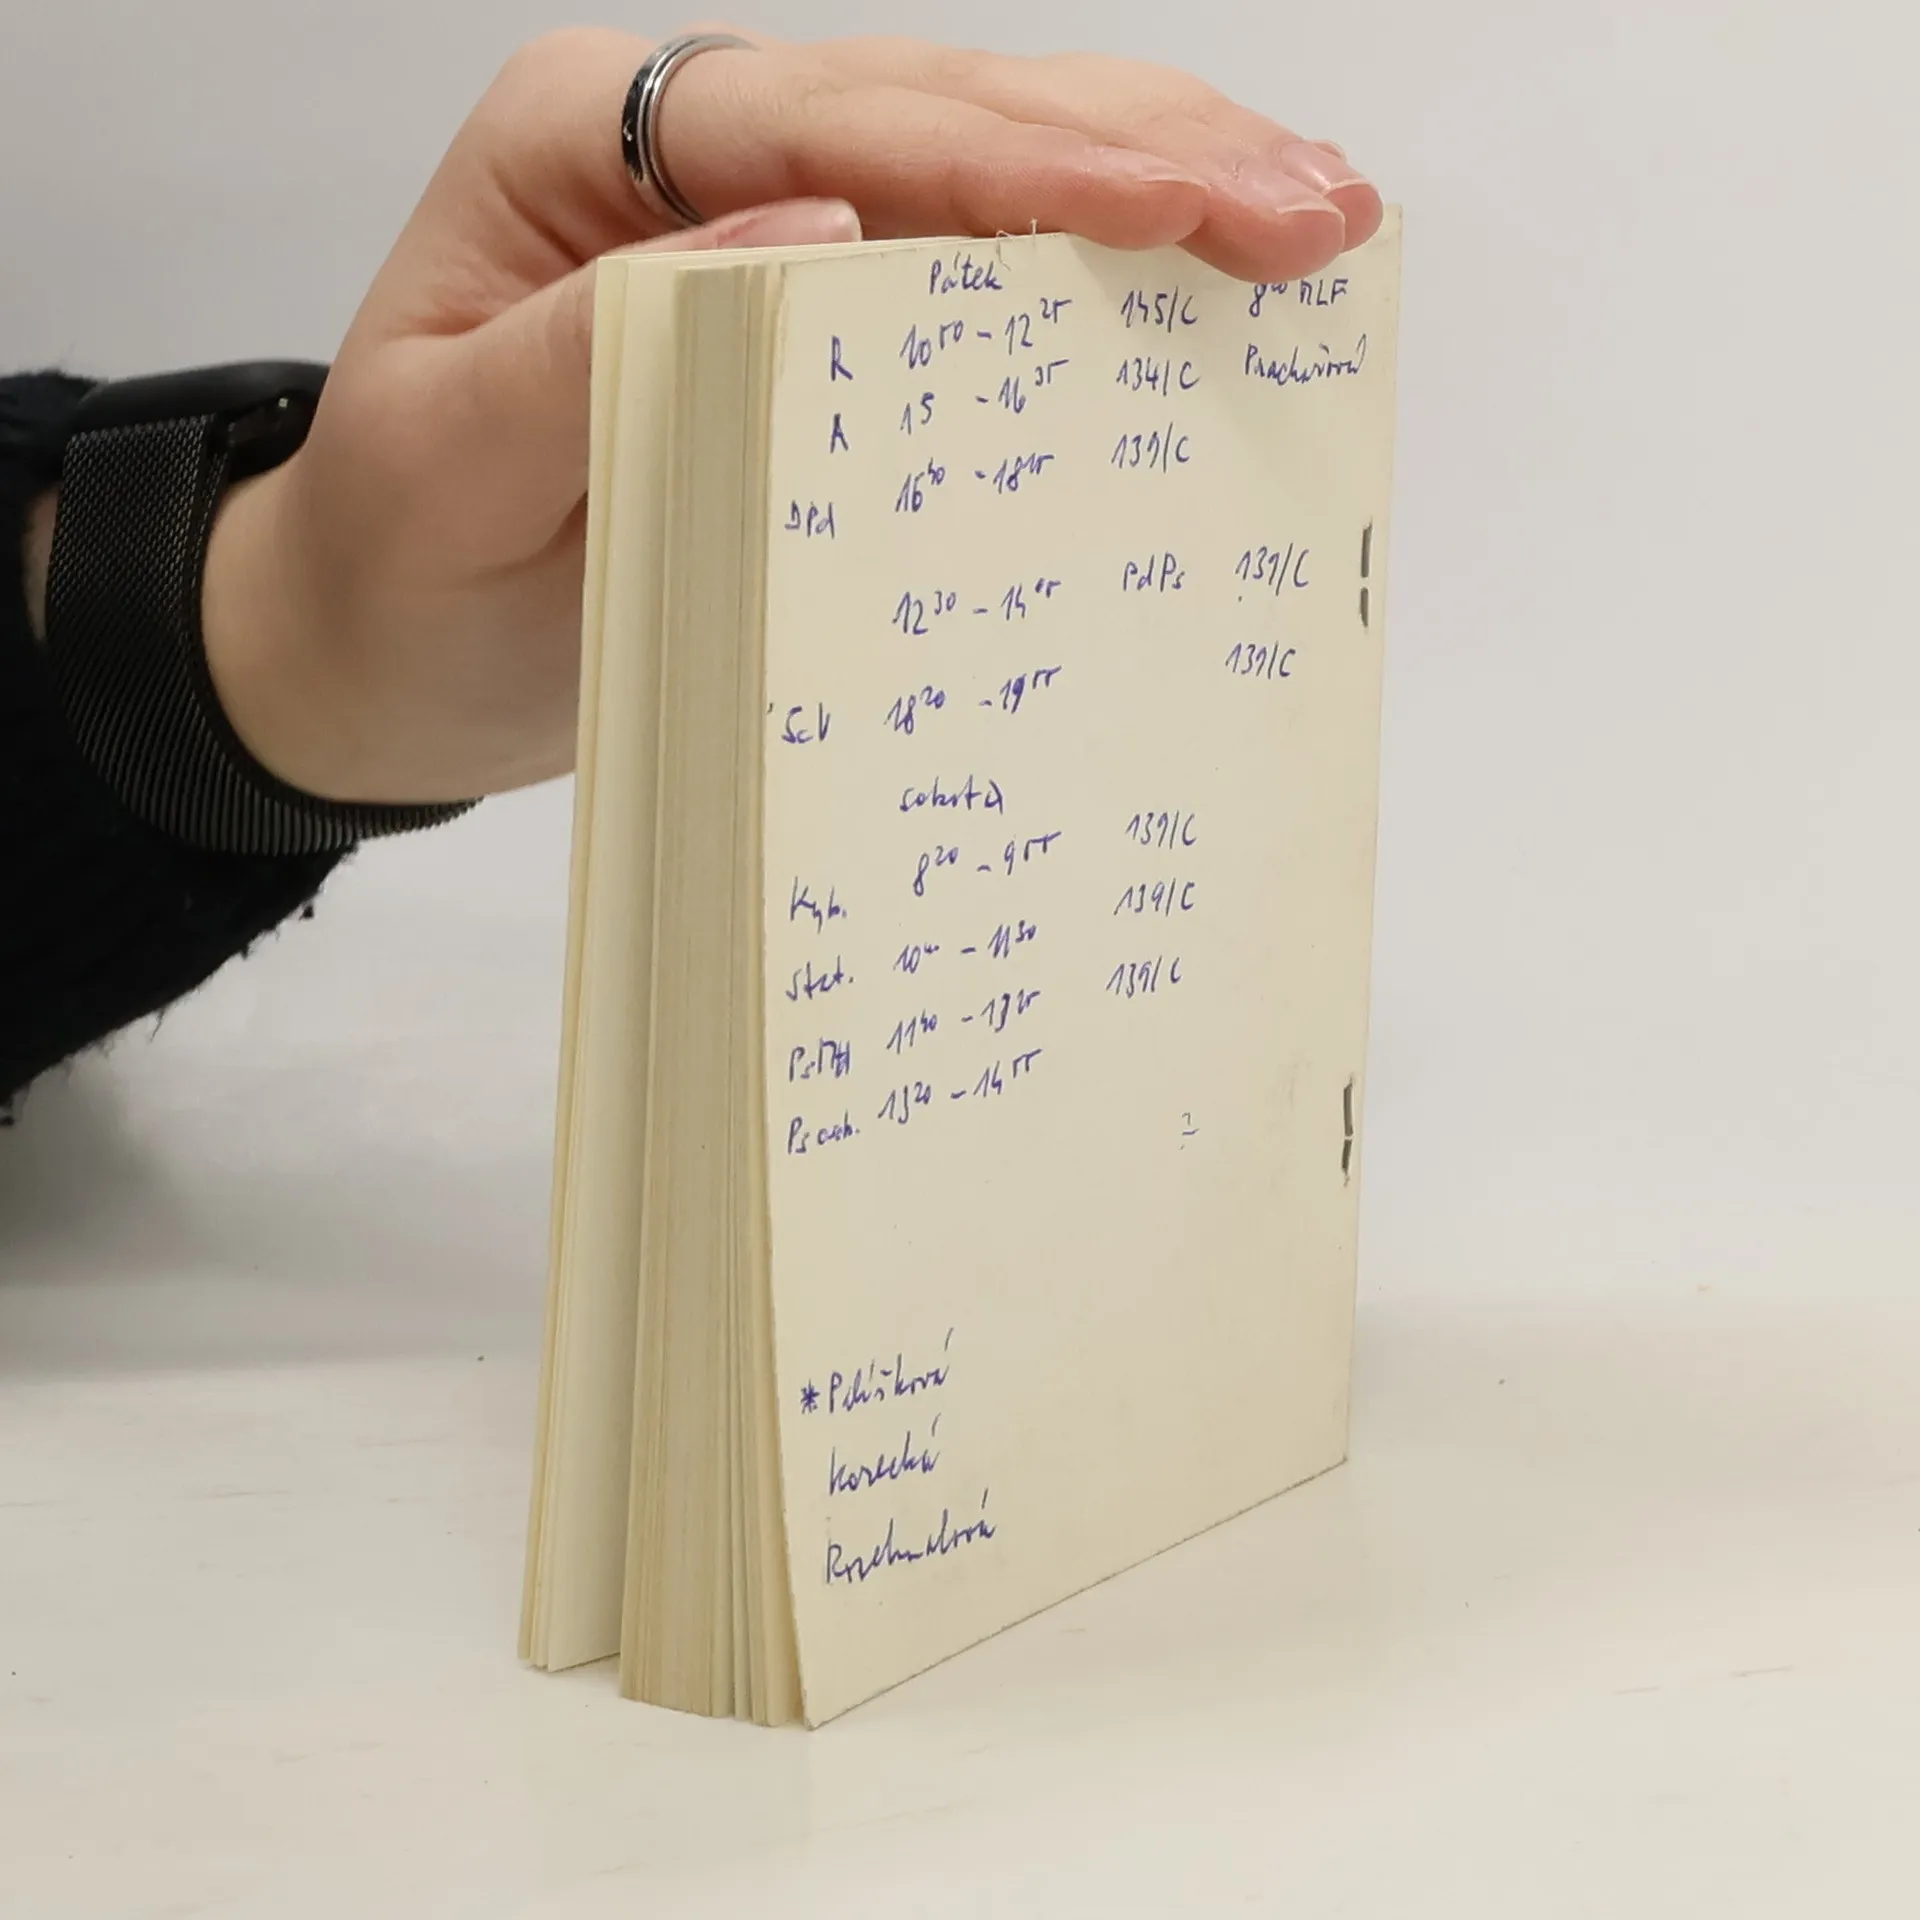 Pátek
R 10⁵⁰ - 12²⁵ 145/C 8⁰⁰ MLF
A 15 - 16³⁵ 134/C
DPd 16⁴⁰ - 18¹⁵ 139/C
12³⁰ - 14⁰⁵ PdPs 139/C
ScV 18²⁰ - 19⁵⁵ 139/C
sobota
Kyb. 8²⁰ - 9⁵⁵ 139/C
Stat. 10⁰⁰ - 11³⁰ 139/C
11⁴⁰ - 13¹⁵ 139/C
Ps osob. 13²⁰ - 14⁵⁵
?
* Plíšková
Korecká